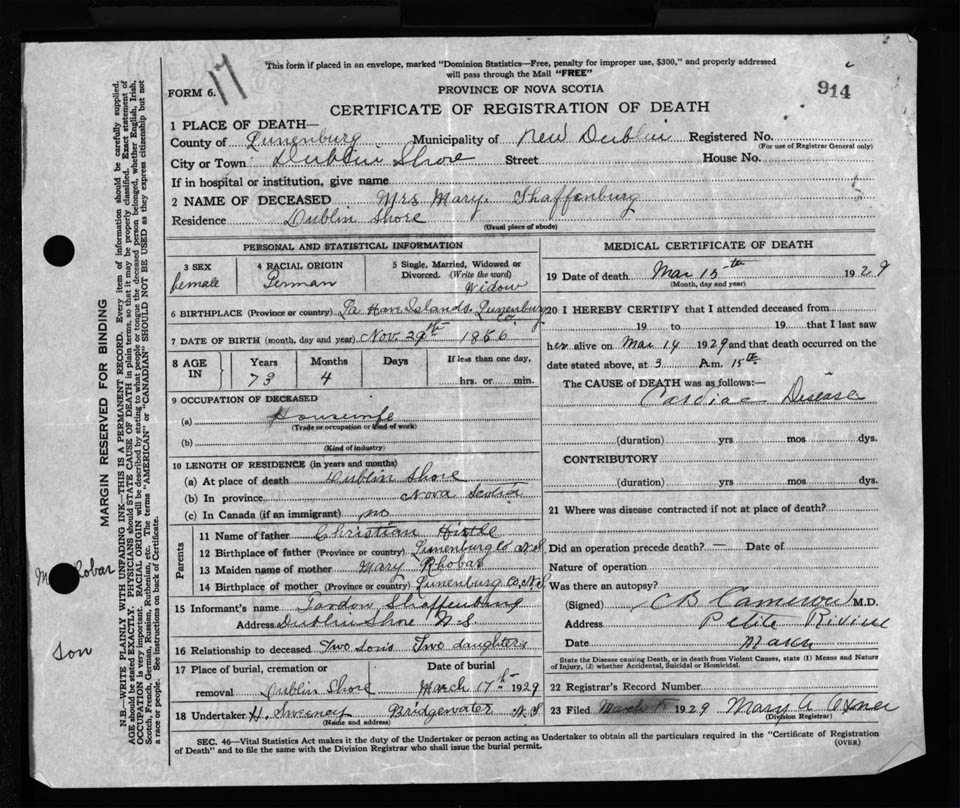 This form if placed in an envelope, marked "Dominion Statistics—Free, penalty for improper use, $300," and properly addressed
will pass through the Mail "FREE"
FORM 6.
17
PROVINCE OF NOVA SCOTIA
914
CERTIFICATE OF REGISTRATION OF DEATH
1 PLACE OF DEATH—
County of Lunenburg Municipality of New Dublin Registered No.
(For use of Registrar General only)
City or Town Dublin Shore Street House No.
If in hospital or institution, give name
2 NAME OF DECEASED Mrs Mary Shaffenburg
Residence Dublin Shore
(Usual place of abode)
PERSONAL AND STATISTICAL INFORMATION
3 SEX
female
4 RACIAL ORIGIN
German
5 Single, Married, Widowed or
Divorced. (Write the word)
Widow
6 BIRTHPLACE (Province or country) La Have Islands. Lunenburg
Co.
7 DATE OF BIRTH (month, day and year) Nov. 29th 1856
8 AGE IN
Years
73
Months
4
Days
If less than one day,
hrs. or min.
9 OCCUPATION OF DECEASED
(a) Housewife
(Trade or occupation or kind of work)
(b)
(Kind of industry)
10 LENGTH OF RESIDENCE (in years and months)
(a) At place of death Dublin Shore
(b) In province Nova Scotia
(c) In Canada (if an immigrant) no
Parents
11 Name of father Christian Hirtle
12 Birthplace of father (Province or country) Lunenburg Co N.S
13 Maiden name of mother Mary Rhobar
14 Birthplace of mother (Province or country) Lunenburg Co, N.S
15 Informant's name Pardon Shaffenburg
Address Dublin Shore N.S.
16 Relationship to deceased Two sons Two daughters
17 Place of burial, cremation or Date of burial
removal Dublin Shore March 17th 1929
18 Undertaker H. Sweeney Bridgewater N.S
(Name and address)
MEDICAL CERTIFICATE OF DEATH
19 Date of death Mar 15th 1929
(Month, day and year)
20 I HEREBY CERTIFY that I attended deceased from
19 to 19 that I last saw
her alive on Mar 14 1929 and that death occurred on the
date stated above, at 3 A.m. 15th.
The CAUSE OF DEATH was as follows:—
Cardiac Disease
(duration) yrs mos dys.
CONTRIBUTORY
(duration) yrs. mos dys.
21 Where was disease contracted if not at place of death?
Did an operation precede death? — Date of
Nature of operation
Was there an autopsy?
(Signed) CB Cameron M.D.
Address Petite Riviere
Date March
State the Disease causing Death, or in death from Violent Causes, state (1) Means and Nature
of Injury, (2) whether Accidental, Suicidal or Homicidal.
22 Registrar's Record Number
23 Filed March 1929 Mary A Oxner
(Division Registrar)
SEC. 46—Vital Statistics Act makes it the duty of the Undertaker or person acting as Undertaker to obtain all the particulars required in the "Certificate of Registration
of Death" and to file the same with the Division Registrar who shall issue the burial permit.
(OVER)
MARGIN RESERVED FOR BINDING
N.B.—WRITE PLAINLY WITH UNFADING INK—THIS IS A PERMANENT RECORD. Every item of information should be carefully supplied.
AGE should be stated EXACTLY. PHYSICIANS should STATE CAUSE OF DEATH in plain terms, so that it may be properly classified. Exact statement of
OCCUPATION is very important. RACIAL ORIGIN will be described by stating to what people or tongue the deceased person belonged, whether English, Irish,
Scotch, French, German, Russian, Ruthenian, etc. The terms "AMERICAN" or "CANADIAN" SHOULD NOT BE USED as they express citizenship but not
a race or people. See instructions on back of Certificate.
Robar
son